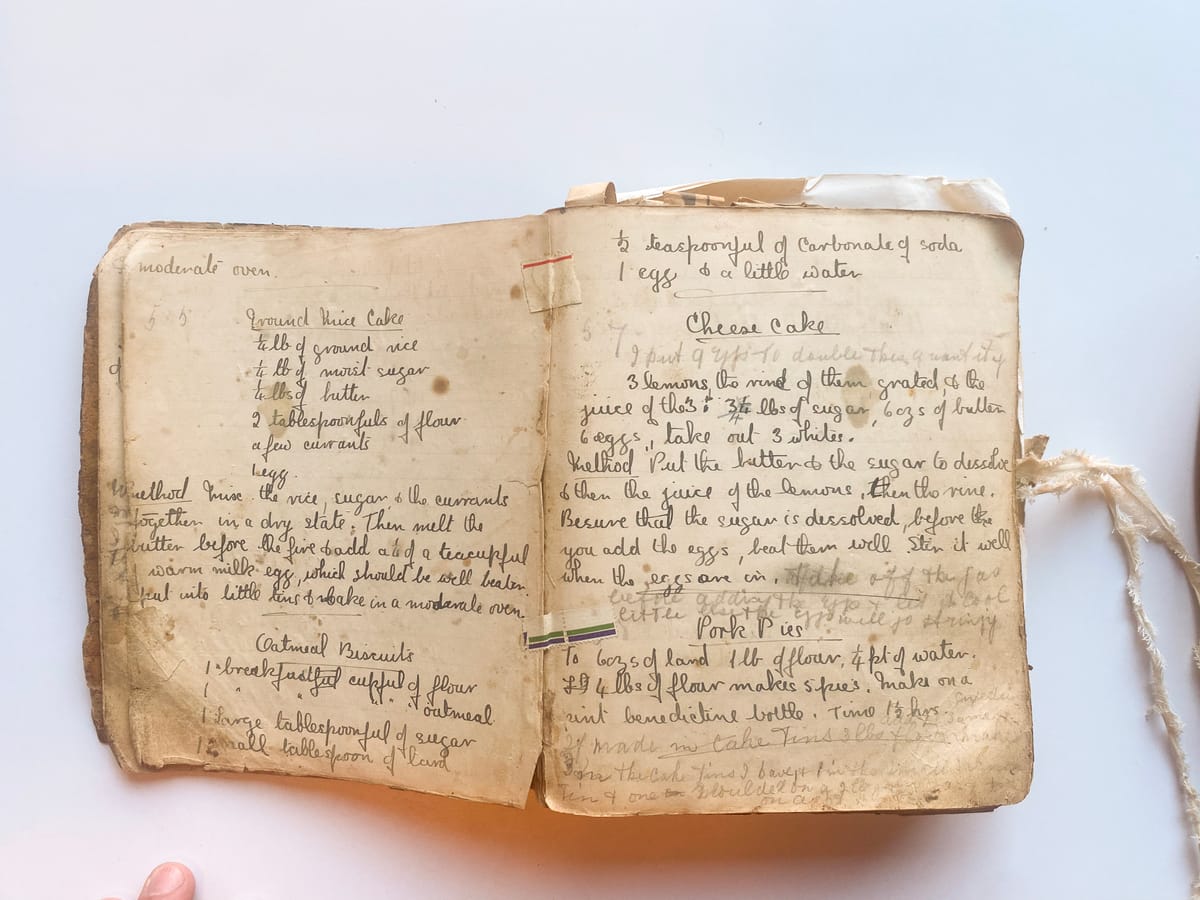 moderate oven.
55
Ground Rice Cake
¼ lb of ground rice
¼ lb of moist sugar
¼ lbs of butter
2 tablespoonfuls of flour
a few currants
1 egg.
Method Mix the rice, sugar & the currants
together in a dry state. Then melt the
butter before the fire & add a ¼ of a teacupful
of warm milk egg, which should be well beaten
put into little tins & bake in a moderate oven.
Oatmeal Biscuits
1 breakfastful cupful of flour
1 " " " oatmeal
1 Large tablespoonful of sugar
1 Small tablespoon of lard
½ teaspoonful of Carbonate of soda
1 egg & a little water
Cheese Cake
57
I put 9 eggs to double this quantity
3 lemons, the rind of them grated, & the
juice of the 3 lbs of sugar, 6 ozs of butter
6 eggs, take out 3 whites.
Method Put the butter & the sugar to dissolve
& then the juice of the lemons, then the rine.
Besure that the sugar is dessolved, before
you add the eggs, beat them well. Ster it well
when the eggs are in. Take off the gas
before adding the eggs & let it cool
little the eggs will go stringy
Pork Pies
To 6ozs of lard 1 lb of flour, ¼ pt of water.
4 lbs of flour makes 5 pies. Make on a
pint benedictine bottle. Time 1½ hrs.
If made in Cake Tins 3 lbs flour
the Cake Tins I have
Tin & one moulded on
on a